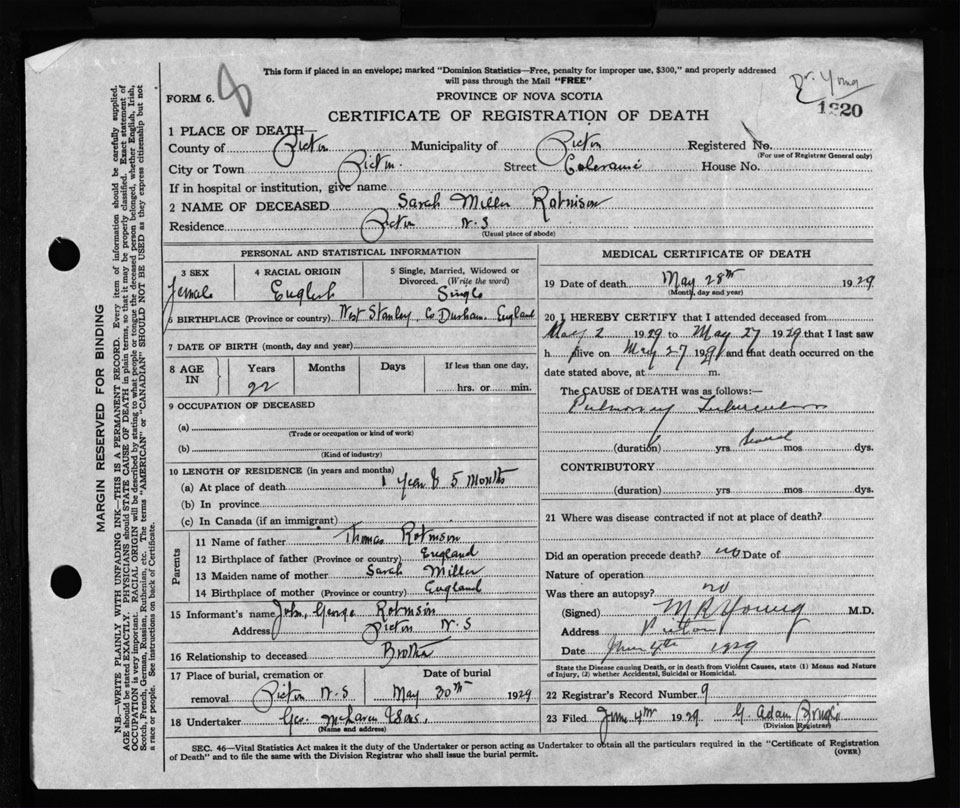 This form if placed in an envelope; marked "Dominion Statistics—Free, penalty for improper use, $300," and properly addressed
will pass through the Mail "FREE"
8
Dr. Young
FORM 6.
PROVINCE OF NOVA SCOTIA
CERTIFICATE OF REGISTRATION OF DEATH
1 PLACE OF DEATH—
County of Pictou Municipality of Pictou Registered No.
(For use of Registrar General only)
City or Town Pictou. Street Coleraine House No.
If in hospital or institution, give name
2 NAME OF DECEASED Sarah Miller Robinson
Residence Pictou N.S
(Usual place of abode)
PERSONAL AND STATISTICAL INFORMATION
3 SEX
Female
4 RACIAL ORIGIN
English
5 Single, Married, Widowed or
Divorced. (Write the word)
Single
6 BIRTHPLACE (Province or country) West Stanley, Co Durham. England
7 DATE OF BIRTH (month, day and year)
8 AGE
IN
Years
Months
Days
If less than one day,
hrs. or min.
9 OCCUPATION OF DECEASED
(a)
(Trade or occupation or kind of work)
(b)
(Kind of industry)
10 LENGTH OF RESIDENCE (in years and months)
(a) At place of death 1 Year & 5 Months
(b) In province
(c) In Canada (if an immigrant)
Parents
11 Name of father Thomas Robinson
12 Birthplace of father (Province or country) England
13 Maiden name of mother Sarah Miller
14 Birthplace of mother (Province or country) England
15 Informant's name John George Robinson
Address Pictou N.S
16 Relationship to deceased Brother
17 Place of burial, cremation or
removal Pictou N.S
Date of burial
May 30th 1929
18 Undertaker Geo. McLaren & Sons.
(Name and address)
MEDICAL CERTIFICATE OF DEATH
19 Date of death May 28th 1929
(Month, day and year)
20 I HEREBY CERTIFY that I attended deceased from
May 2 1929 to May 27 1929 that I last saw
h alive on May 27 1929 and that death occurred on the
date stated above, at m.
The CAUSE OF DEATH was as follows:—
Pulmonary Tuberculosis
(duration) yrs several mos dys.
CONTRIBUTORY
(duration) yrs mos dys.
21 Where was disease contracted if not at place of death?
Did an operation precede death? no Date of
Nature of operation
Was there an autopsy? no
(Signed) M R Young M.D.
Address Pictou
Date June 4th 1929
State the Disease causing Death, or in death from Violent Causes, state (1) Means and Nature
of Injury, (2) whether Accidental, Suicidal or Homicidal.
22 Registrar's Record Number 9
23 Filed June 4th 1929 G. Adam
(Division Registrar)
SEC. 46—Vital Statistics Act makes it the duty of the Undertaker or person acting as Undertaker to obtain all the particulars required in the "Certificate of Registration
of Death" and to file the same with the Division Registrar who shall issue the burial permit.
(OVER)
MARGIN RESERVED FOR BINDING
N.B.—WRITE PLAINLY WITH UNFADING INK—THIS IS A PERMANENT RECORD. Every item of information should be carefully supplied.
AGE should be stated EXACTLY. PHYSICIANS should STATE CAUSE OF DEATH in plain terms, so that it may be properly classified. Exact statement of
OCCUPATION is very important. RACIAL ORIGIN will be described by stating to what people or tongue the deceased person belonged, whether English, Irish,
Scotch, French, German, Russian, Ruthenian, etc. The terms "AMERICAN" or "CANADIAN" SHOULD NOT BE USED as they express citizenship but not
a race or people. See instructions on back of Certificate.